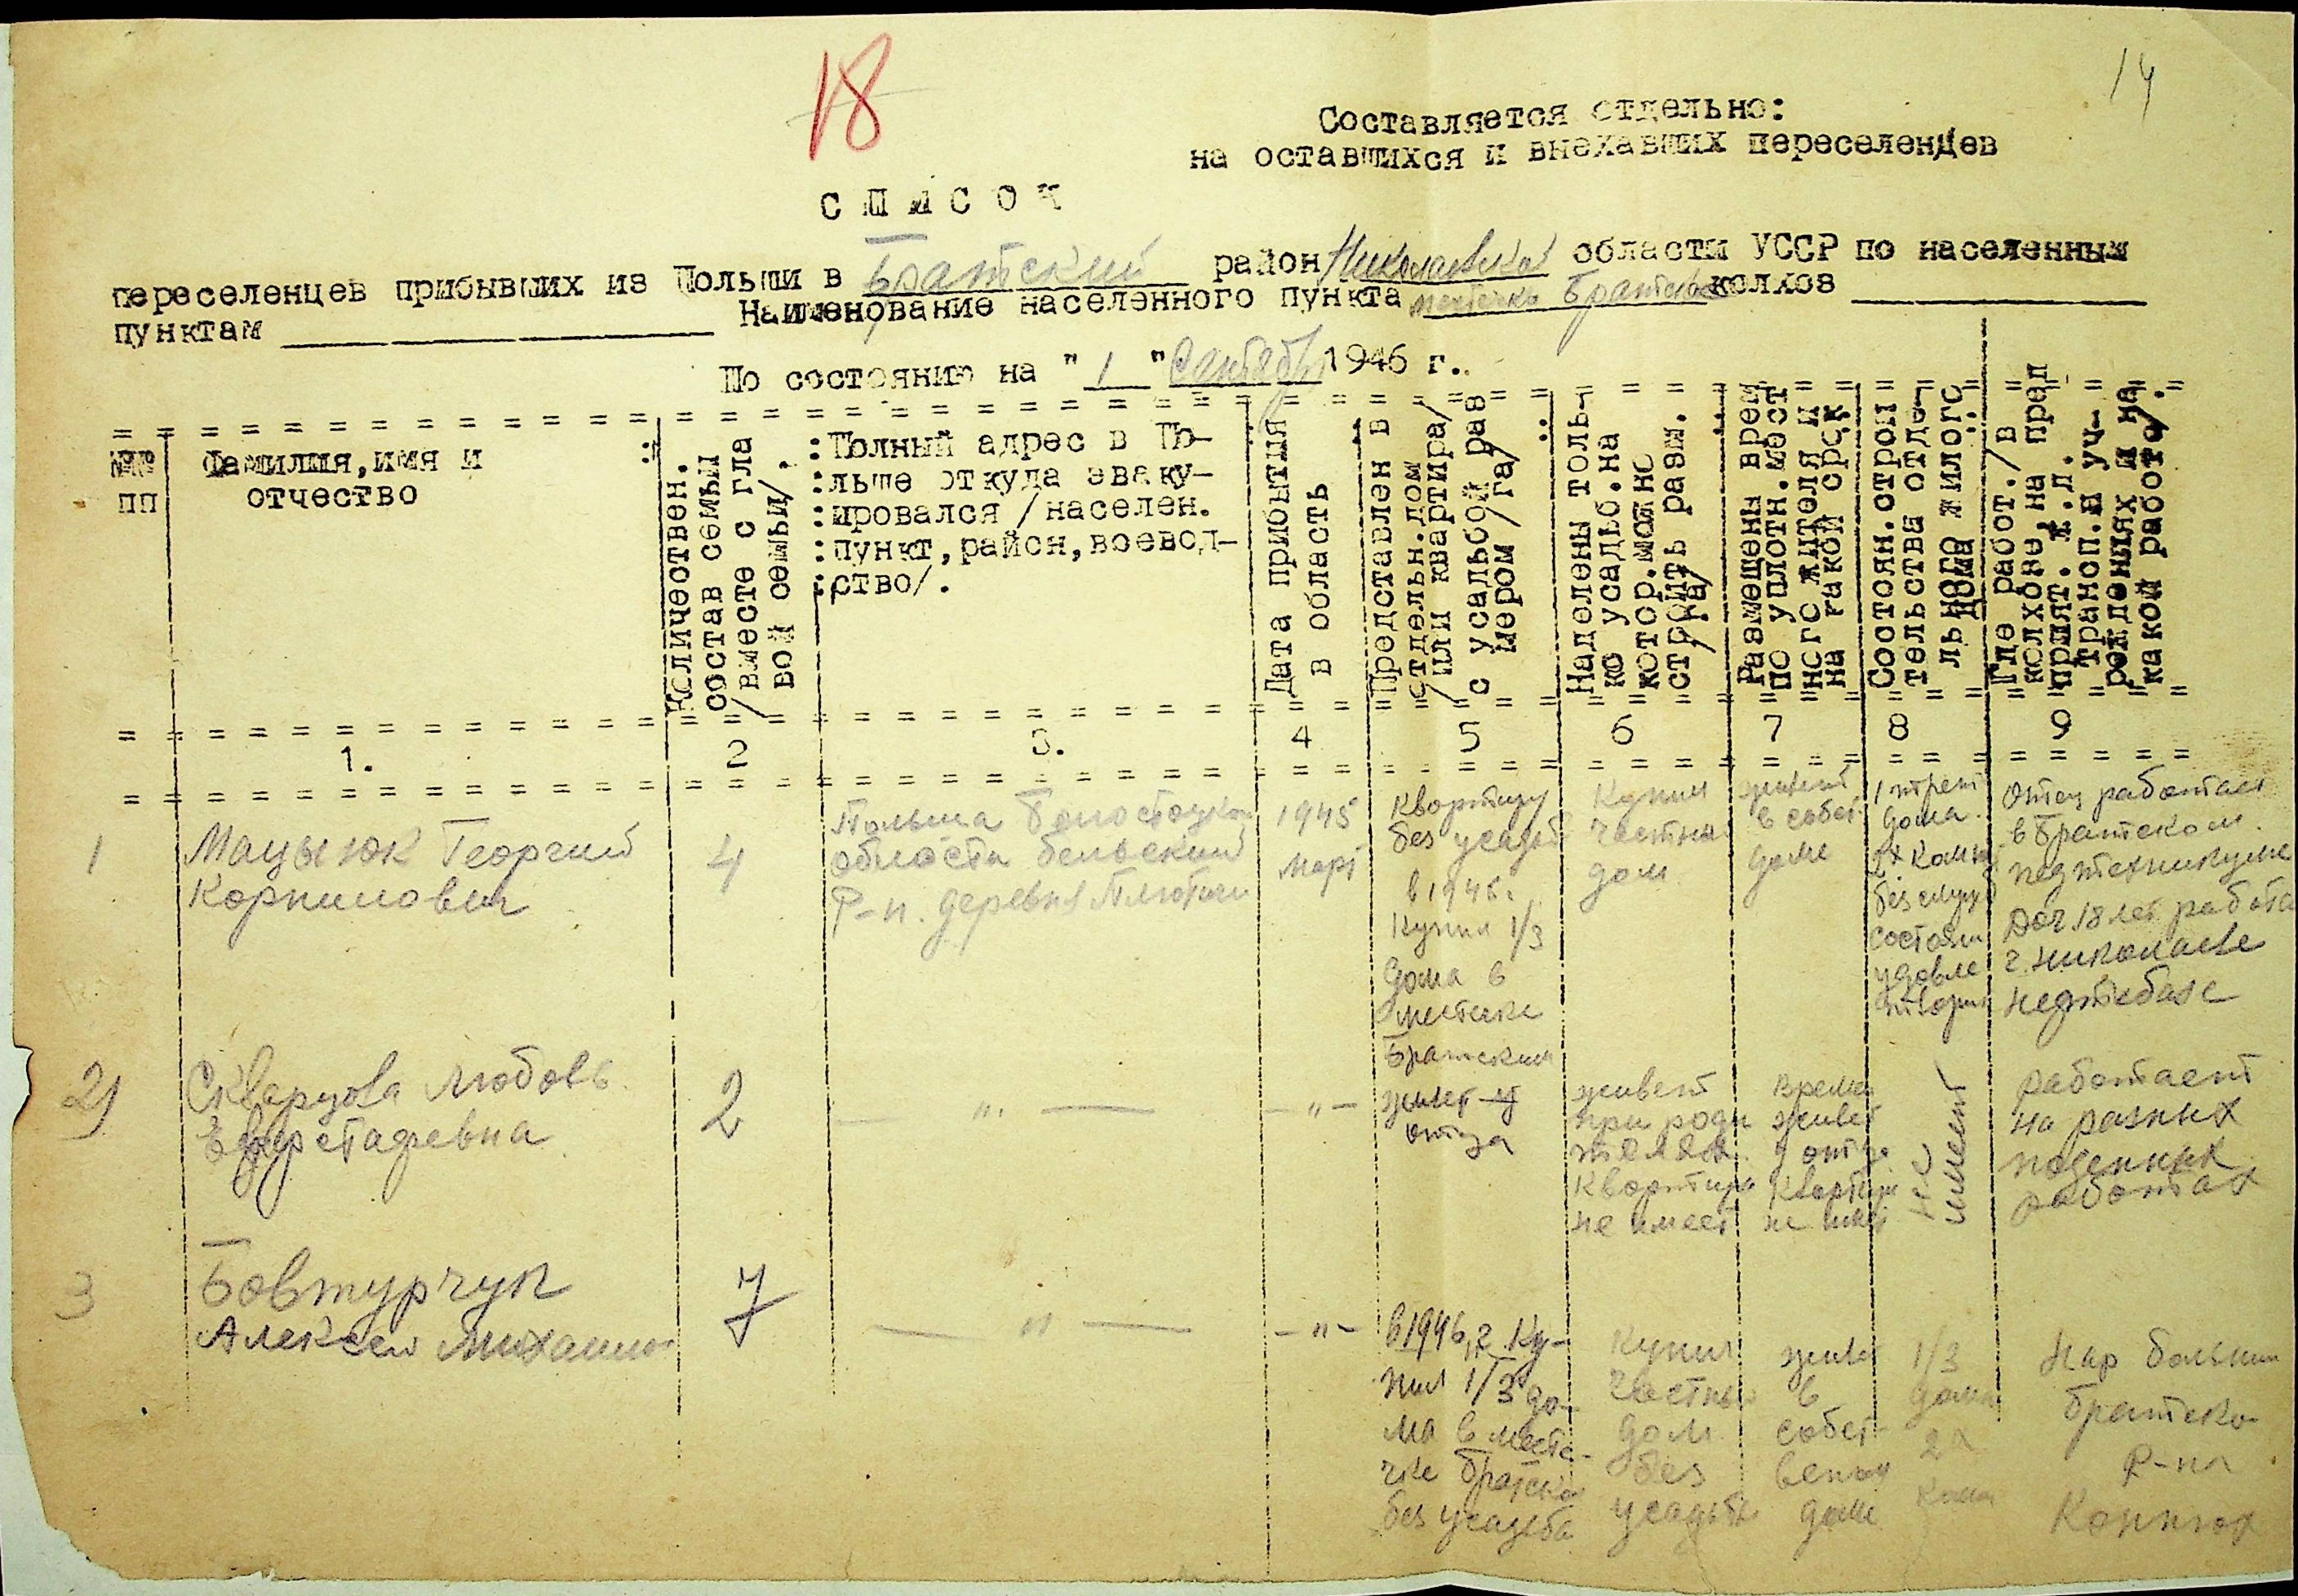 18
14
Составляется отдельно:
на оставшихся и внехавших переселенцев
С П И С О К
переселенцев прибывших из Польши в Братский район Николаевской области УССР по населенным
пунктам Наименование населенного пункта местечко Братское колхоз
По состоянию на "1" Сентября 1946 г.
№№ пп
Фамилия, имя и
отчество
Количествен.
состав семьи
/вместе с гла
вой семьи/.
Полный адрес в По-
льше откуда эваку-
ировался /населен.
пункт, район, воевод-
ство/.
Дата прибытия
в область
Представлен в
отдельн.дом
/или квартира/
с усадьбой раз
мером /га/
Наделены толь-
ко усадьб.на
котор.можно
строить разм.
/га/
Размещены врем
по уплотн.мест
ного жителя и
на какой срок
Состоян.строи
тельства отде-
льного жилого
дома
Где работ./в
колхозе, на пред
прият. ж.д.
трансп.и уч-
реждениях и на
какой работе/.
1. 2 3. 4 5 6 7 8 9
1
Мацыюк Георгий
Корнилович
4
Польша Белостоцкой
области бельский
Р-н. деревня Плютичи
1945
март
Квартиру
без усадьб
в 1946г
Купил 1/3
дома в
местечке
Братским
Купил
частный
дом
живет
в собст.
доме
1 трет
дома
2х комн
без служб
состоян
удовле
творит
Отец работает
в Братском
педтехникуме
Доч 18 лет работа
г. Николаеве
нефтебазе
2)
Скварцова Любовь
Евстафевна
2
— " —
— " —
живет у
отца
живет
при роди
телях
Квартиры
не имеет
времен
живет
у отца
Квартиры
не имеет
не
имеет
работает
на разных
поденных
работах
3
Бовтурчук
Алексей Михайло
7
— " —
— " —
в 1946 г. Ку-
пил 1/3 до-
ма в месте-
чке Братско
без усадьба
Купил
частный
дом
без
усадьбы
живет
в
собст-
венном
доме
1/3
дома
2х
комн
Нар больни
братско
Р-на
Конюх